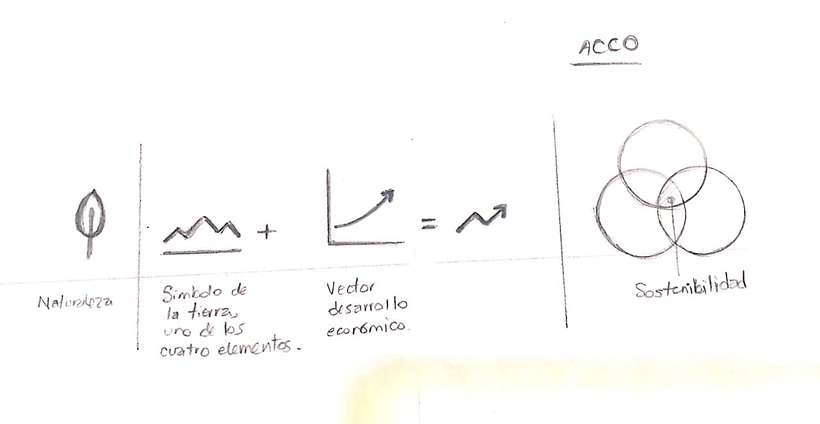 ACCO
Naturaleza
Símbolo de
la tierra,
uno de los
cuatro elementos.
+
=
Vector
desarrollo
económico.
Sostenibilidad